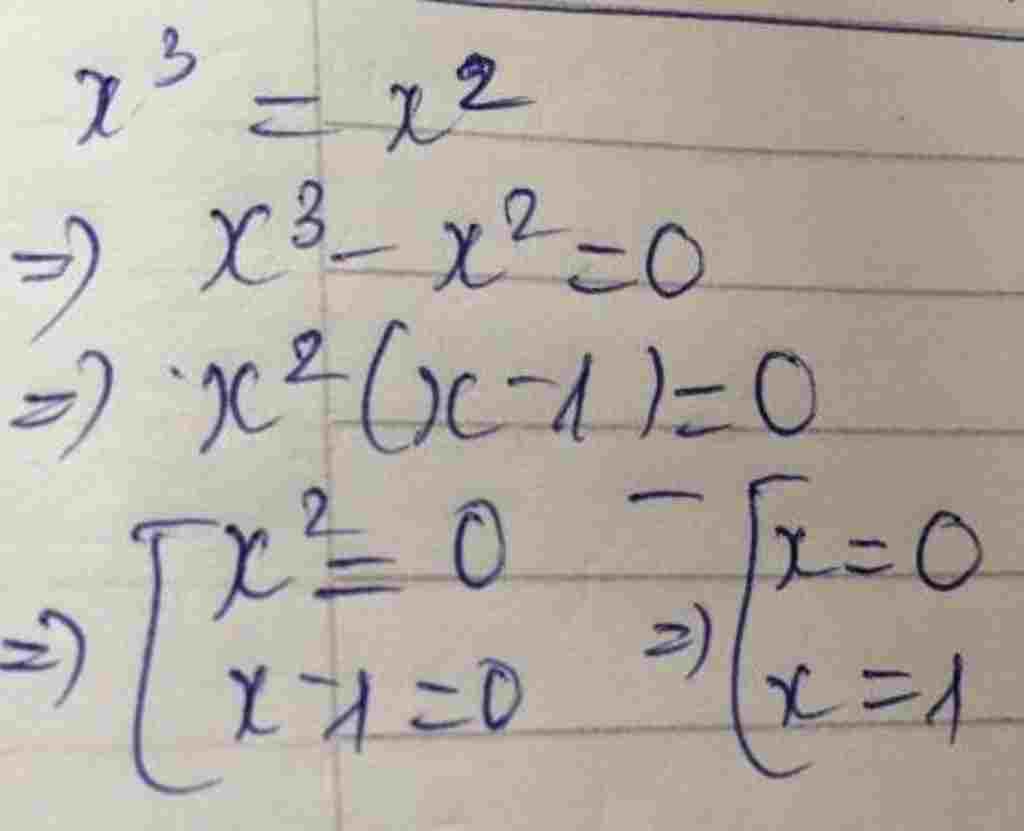 x³ = x²
=> x³ - x² = 0
=> x² (x - 1) = 0
=> [ x² = 0 => [ x = 0
x - 1 = 0 x = 1